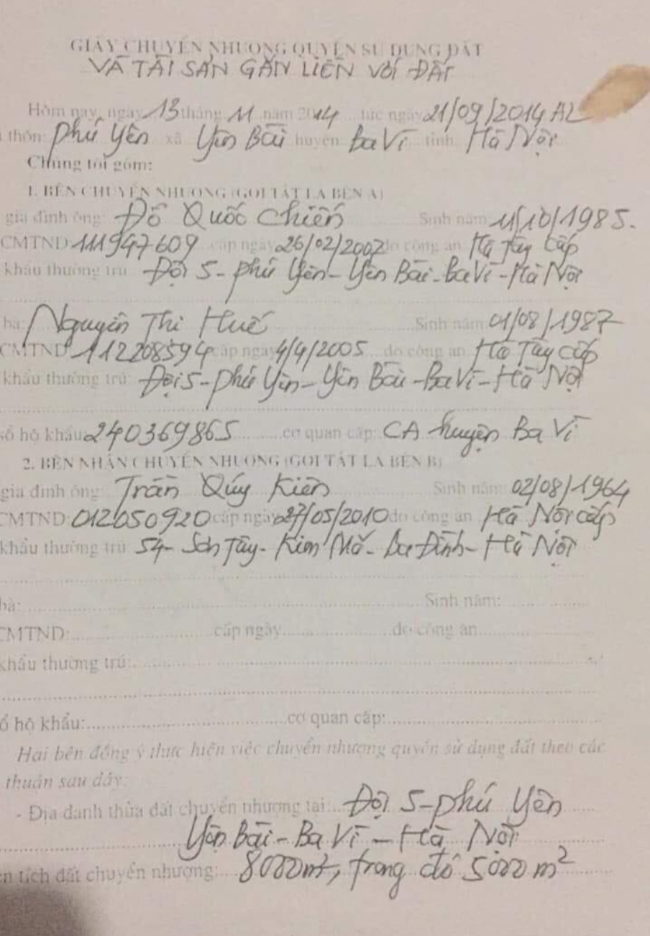 GIẤY CHUYỂN NHƯỢNG QUYỀN SỬ DỤNG ĐẤT
VÀ TÀI SẢN GẮN LIỀN VỚI ĐẤT
Hôm nay, ngày 13 tháng 11 năm 2014 tức ngày 21/09/2014 AL
thôn: Phú Yên xã Yên Bài huyện Ba Vì tỉnh Hà Nội
Chúng tôi gồm:
1. BÊN CHUYỂN NHƯỢNG (GỌI TẮT LÀ BÊN A)
gia đình ông: Đỗ Quốc Chiến Sinh năm: 11/10/1985.
CMTND: 111947609 cấp ngày 26/02/2002 do công an Hà Tây cấp
khẩu thường trú Đội 5 - Phú Yên - Yên Bài - Ba Vì - Hà Nội
bà: Nguyễn Thị Huế Sinh năm: 01/08/1987
CMTND: 112208594 cấp ngày 4/4/2005 do công an Hà Tây cấp
khẩu thường trú: Đội 5 - Phú Yên - Yên Bài - Ba Vì - Hà Nội
sổ hộ khẩu: 240369865 cơ quan cấp: CA huyện Ba Vì
2. BÊN NHẬN CHUYỂN NHƯỢNG (GỌI TẮT LÀ BÊN B)
gia đình ông: Trần Qúy Kiên Sinh năm: 02/08/1964
CMTND: 012050920 cấp ngày 27/05/2010 do công an Hà Nội cấp
khẩu thường trú: 54 - Sơn Tây - Kim Mã - Ba Đình - Hà Nội
bà: Sinh năm:
CMTND: cấp ngày do công an
khẩu thường trú:
ổ hộ khẩu: cơ quan cấp:
Hai bên đồng ý thực hiện việc chuyển nhượng quyền sử dụng đất theo các
thuận sau đây:
- Địa danh thửa đất chuyển nhượng tại: Đội 5 - Phú Yên
Yên Bài - Ba Vì - Hà Nội
ện tích đất chuyển nhượng: 8000m², trong đó 5000m²